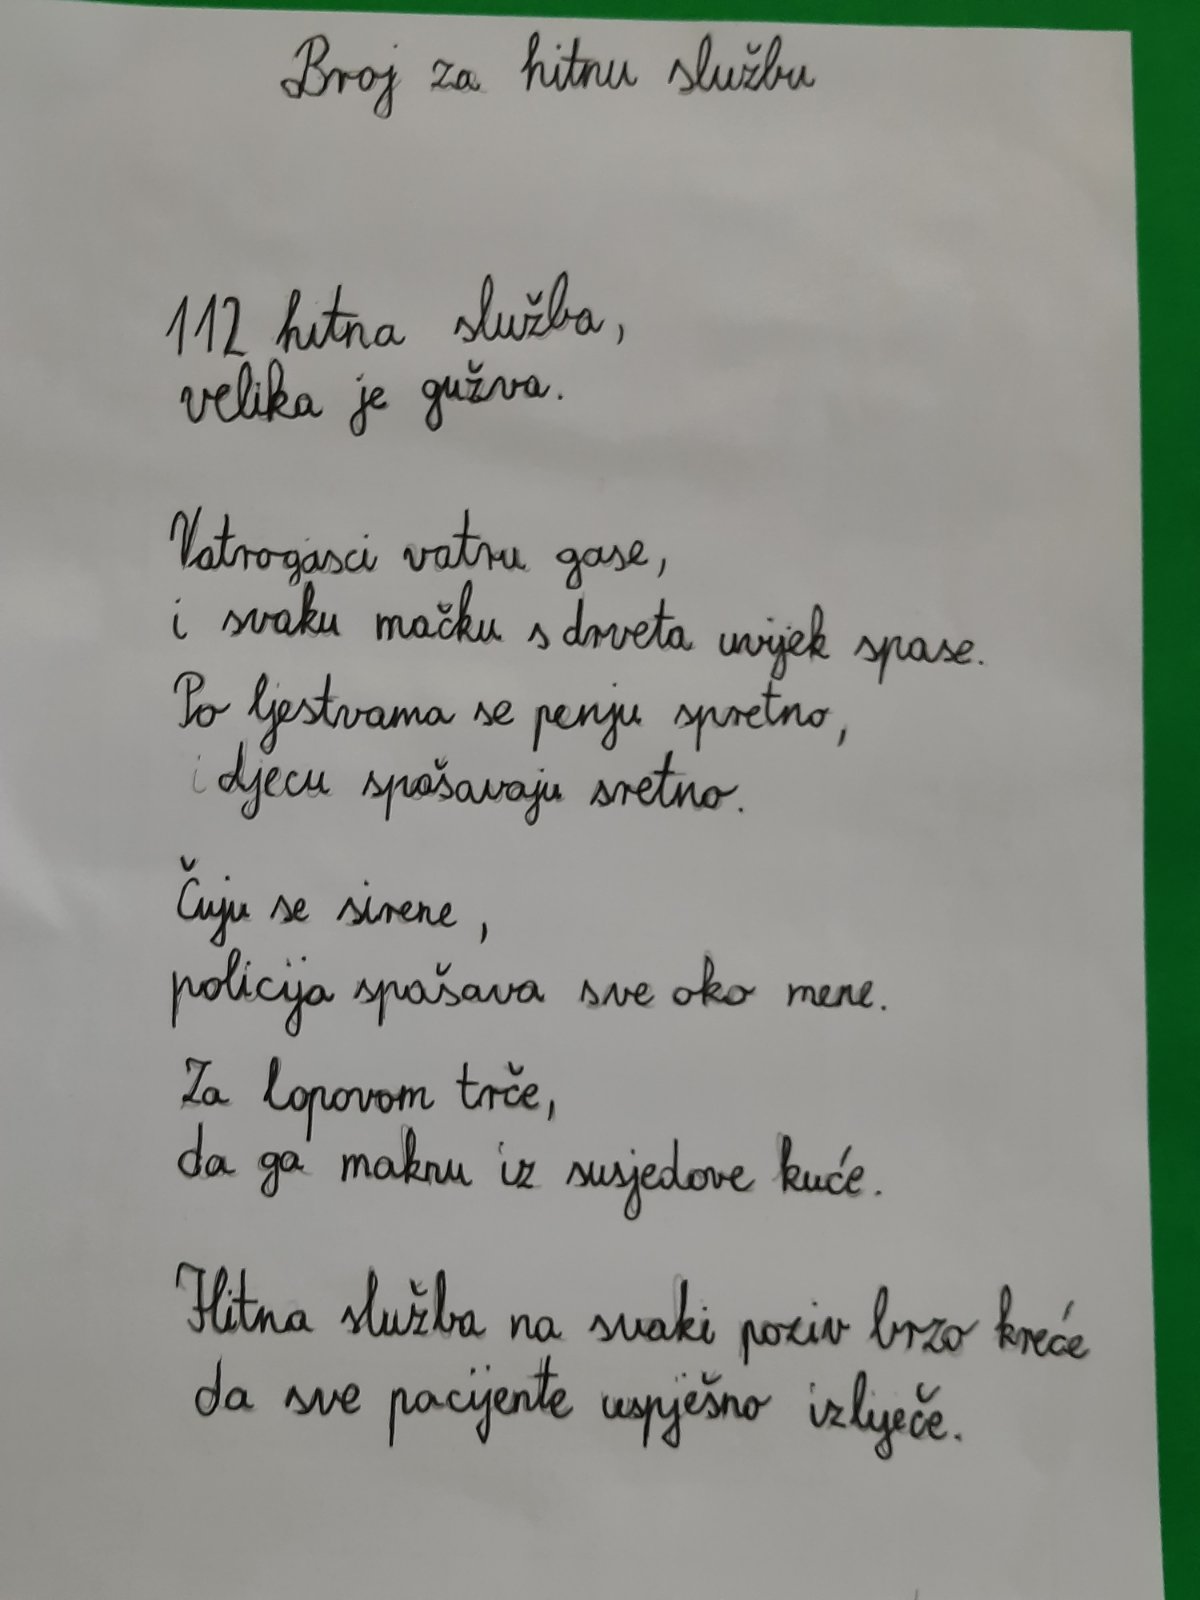 Broj za hitnu službu
112 hitna služba,
velika je gužva.
Vatrogasci vatru gase,
i svaku mačku s drveta uvijek spase.
Po ljestvama se penju spretno,
i djecu spašavaju sretno.
Čuju se sirene,
policija spašava sve oko mene.
Za lopovom trče,
da ga maknu iz susjedove kuće.
Hitna služba na svaki poziv brzo kreće
da sve pacijente uspješno izliječe.